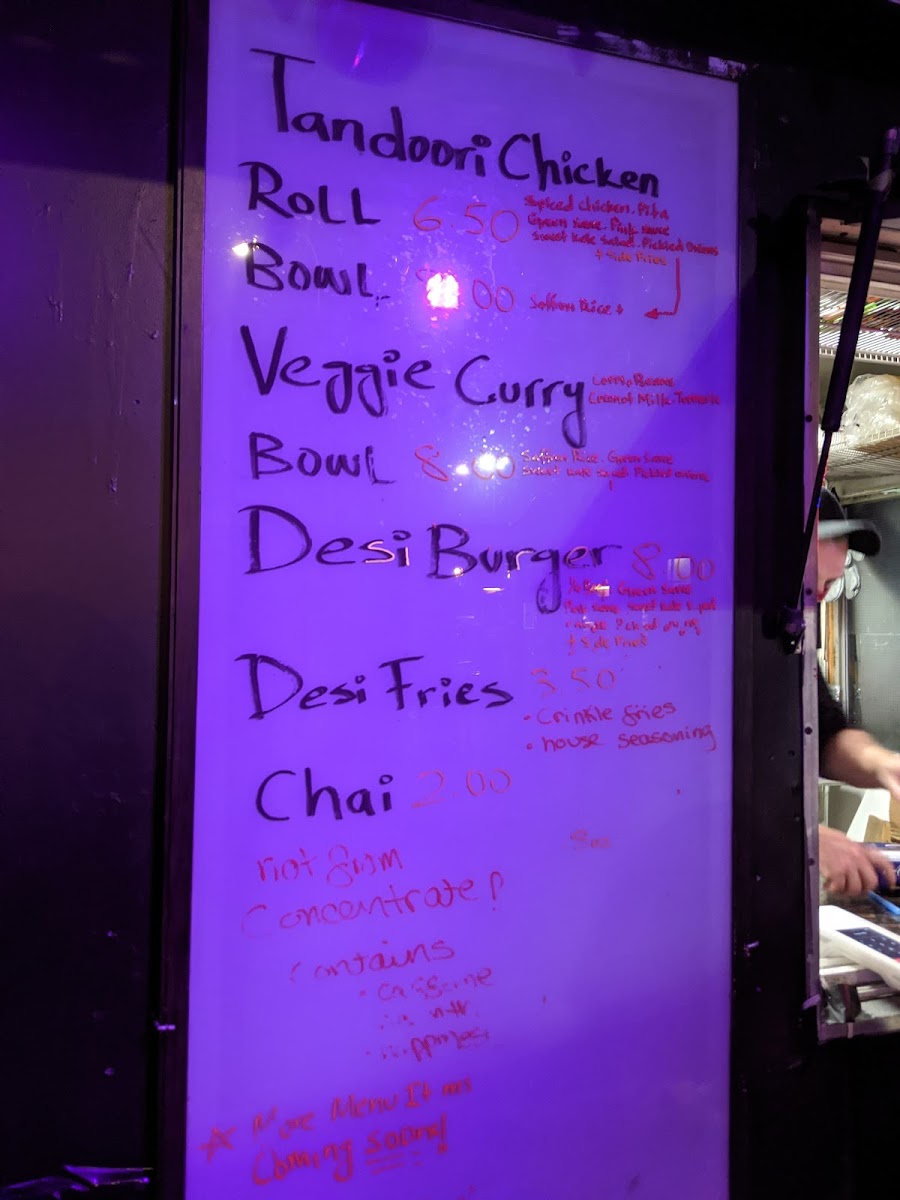 Tandoori Chicken
Roll 6.50 Spiced chicken. Pita
Green Sauce. Pink Sauce
Sweet Kale Salad. Pickled Onions
+ Side Fries
Bowl .00 Saffron Rice +
Veggie Curry
Coconut Milk. Turmeric
Bowl 8.00 Saffron Rice. Green Sauce
Sweet Kale Salad Pickled onions
Desi Burger 8.00
Green Sauce
Sweet Kale
Pickled
+ Side Fries
Desi Fries 3.50
• Crinkle fries
• house seasoning
Chai 2.00
not from
Concentrate!
Contains
• caffeine
• happiness
☆ More Menu Items
Coming soon!